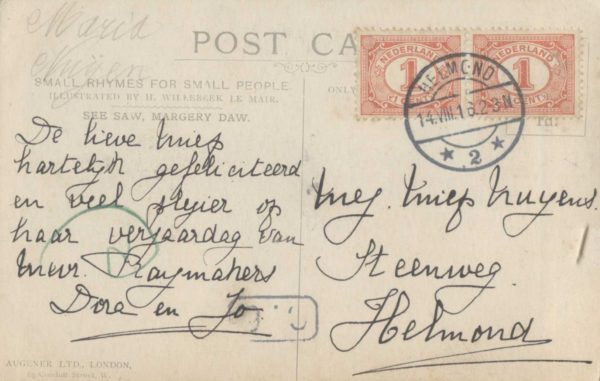 Maria
POST CA
SMALL RHYMES FOR SMALL PEOPLE.
ILLUSTRATED BY H. WILLEBEEK LE MAIR.
SEE SAW, MARGERY DAW.
ONLY
NEDERLAND
1
CENT
NEDERLAND
1
CENT
HELMOND
14.VIII.16.2-3N
2
De lieve Miep
hartelijk gefeliciteerd
en veel plezier op
haar verjaardag van
Mevr. Raymakers
Dora en Jo
Mej. Miep Nuyens.
Steenweg
Helmond
AUGENER LTD., LONDON,
63 Conduit Street, W.